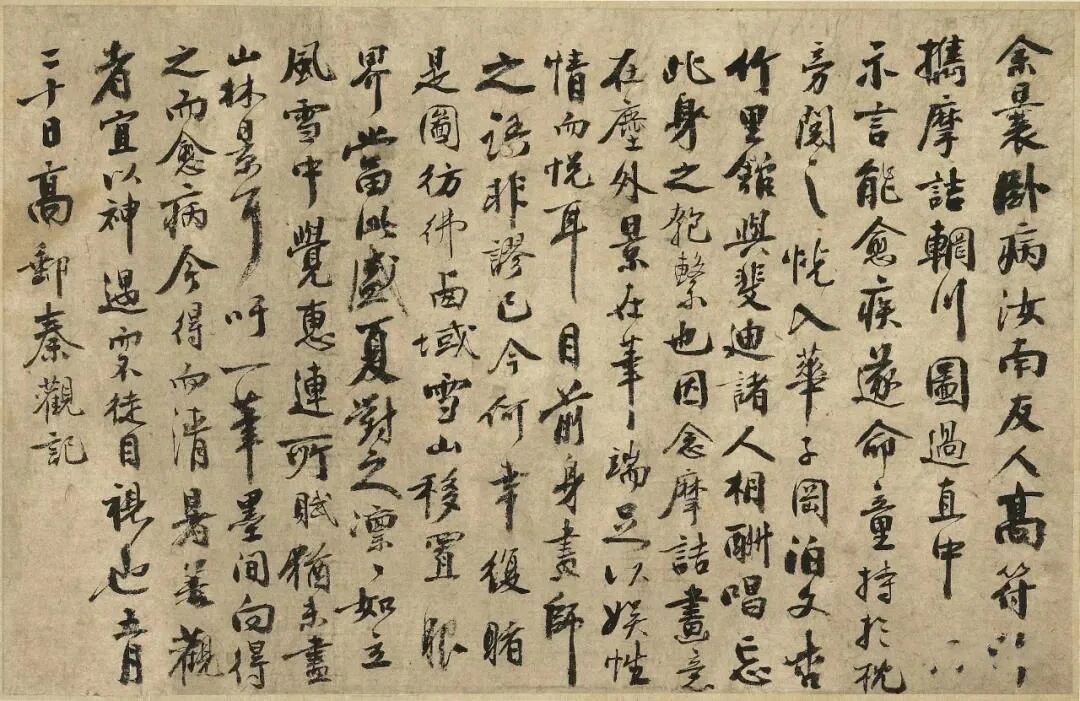 余曩臥病汝南友人高符
攜摩詰輞川圖過直中
示言能愈疾遂命童持於枕
旁閱之恍入華子岡泊文杏
竹里館與斐迪諸人相酬唱忘
此身之匏繫也因念摩詰畫意
在塵外景在筆端足以娛性
情而悅耳目前身畫師
之語非謬已今何幸復睹
是圖彷彿西域雪山移置眼
界當此盛夏對之凛〻如立
風雪中覺惠連所賦猶未盡
山林景耳吁一筆墨間向得
之而愈病今得而清暑善觀
者宜以神遇而不徒目視也五月
二十日高郵秦觀記